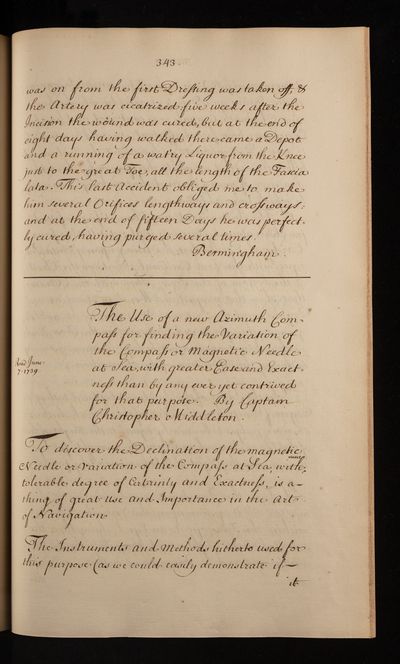 343.
was on from the first Dressing was taken off, &
the Artery was cicatrized five weeks after the
Incision the wound was cured, but at the end of
eight days having walked there came a Depot
and a running of a watry Liquor from the Knee
just to the great Toe, all the length of the Fascia
lata. This last Accident obliged me to make
him several Orifices lengthways and crossways;
and at the end of fifteen Days he was perfect-
ly cured, having purged several times.
Bermingham.
The Use of a new Azimuth Com-
pass for finding the Variation of
the Compass or Magnetic Needle
at Sea, with greater Ease and Exact-
ness than by any ever yet contrived
for that purpose. By Captain
Christopher Middleton.
read June
7. 1739
To discover the Declination of the magnetic
Needle or Variation of the Compass at Sea, with
tolerable degree of Certainty and Exactness, is a
thing of great Use and Importance in the Art
of Navigation
The Instruments and Methods hitherto used for
this purpose (as we could easily demonstrate if
it